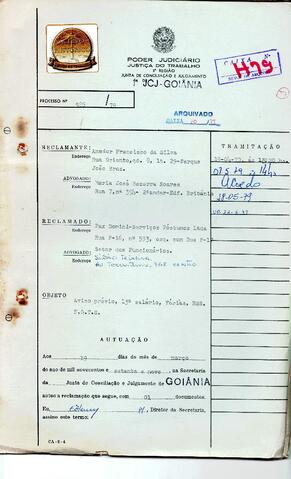 PODER JUDICIÁRIO
JUSTIÇA DO TRABALHO
3ª REGIÃO
JUNTA DE CONCILIAÇÃO E JULGAMENTO
1ª JCJ-GOIÂNIA
1479
PROCESSO Nº /79
ARQUIVADO
CAIXA
RECLAMANTE: Amador Francisco da Silva
Endereço Rua Oriente, qc. 8, lt. 29-Parque
João Braz.
ADVOGADO: Maria José Bezerra Soares
Endereço Rua 7, nº 354
RECLAMADO: Pax Domini-Serviços Póstumos Ltda
Endereço Rua P-16, nº 593, esq. com Rua P-19
Setor dos Funcionários.
ADVOGADO:
Endereço
TRAMITAÇÃO
28-05-79
OBJETO Aviso prévio, 13º salário, Férias,
F.G.T.S.
AUTUAÇÃO
Aos 19 dias do mês de março
do ano de mil novecentos e setenta e nove, na Secretaria
da Junta de Conciliação e Julgamento de GOIÂNIA
autuo a reclamação que segue, com 01 documentos.
Eu, Diretor da Secretaria,
assino este termo: